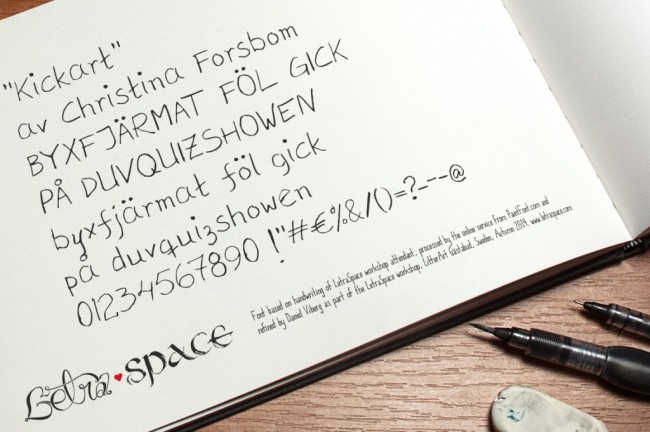 "Kickart"
av Christina Forsbom
BYXFJÄRMAT FÖL GICK
PÅ DUVQUIZSHOWEN
byxfjärmat föl gick
på duvquizshowen
01234567890 !"#€%&/()=?_---@
Font based on handwriting of LetraSpace workshop attendant, processed by the online service from PaintFont.com and
refined by Daniel Viberg as part of the LetraSpace workshop, LitterArt Gästabud, Sweden, Autumn 2014. www.letraspace.com
Letra♥space